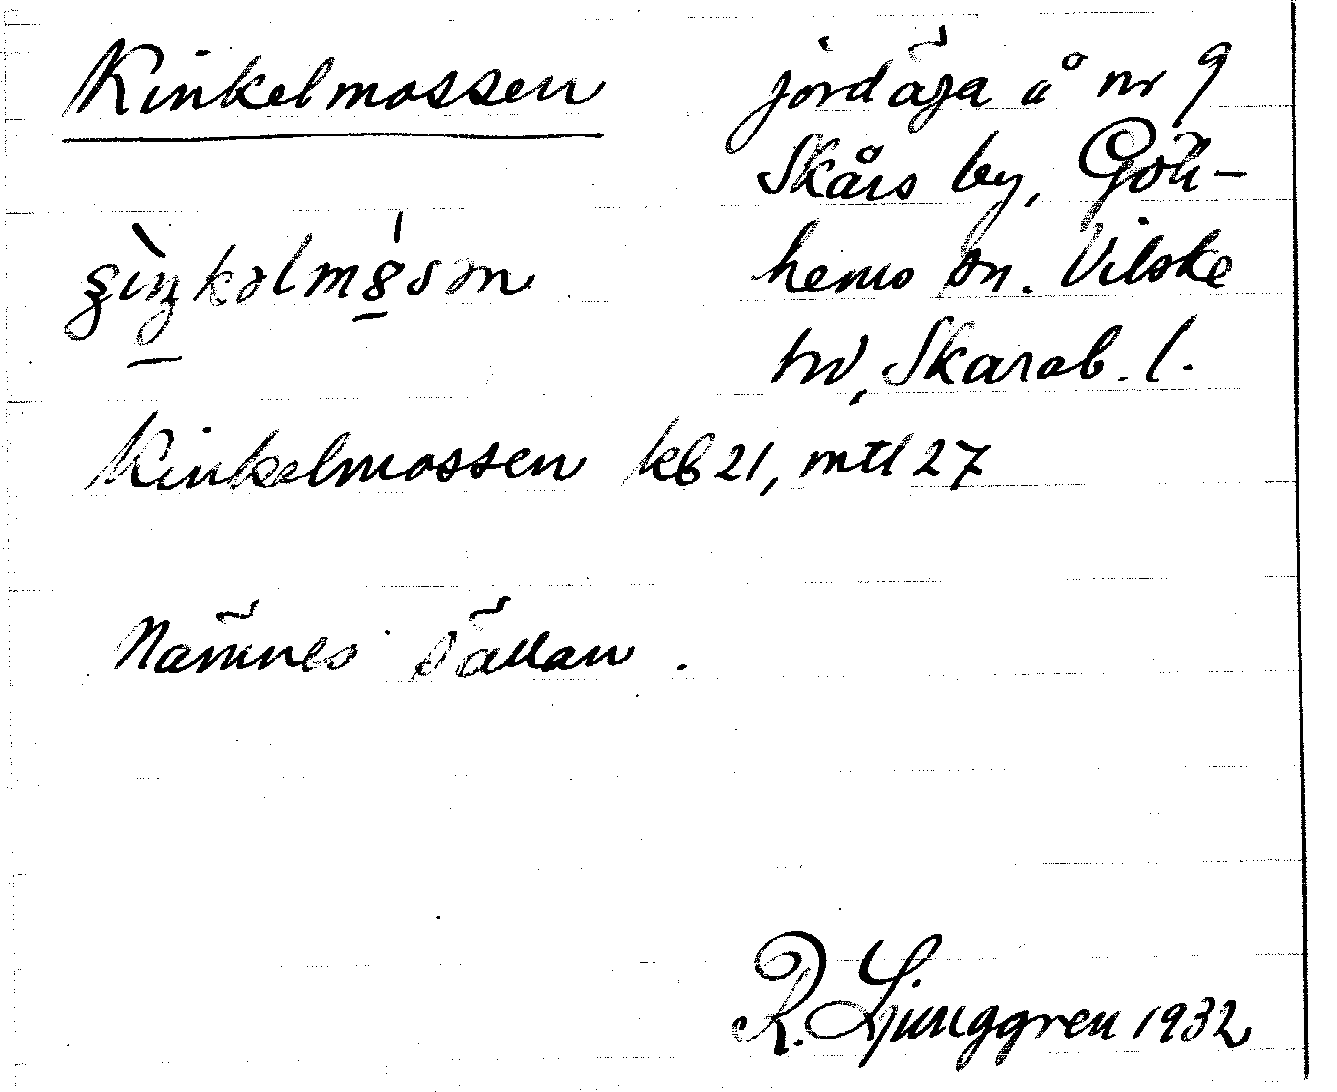 Kinkelmossen
jordäga å nr 9
Skårs by, Gök-
hems sn. Vilske
hd, Skarab. l.
Kinkelmossen kb 21, mtl 27
Nämnes sällan.
R. Ljunggren 1932